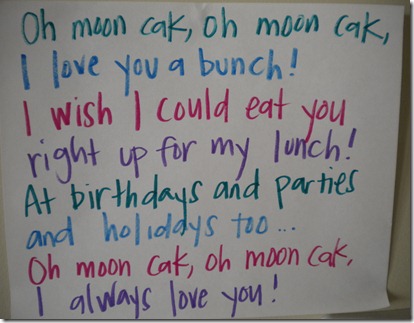 Oh moon cak, oh moon cak,
I love you a bunch!
I wish I could eat you
right up for my lunch!
At birthdays and parties
and holidays too...
Oh moon cak, oh moon cak,
I always love you!